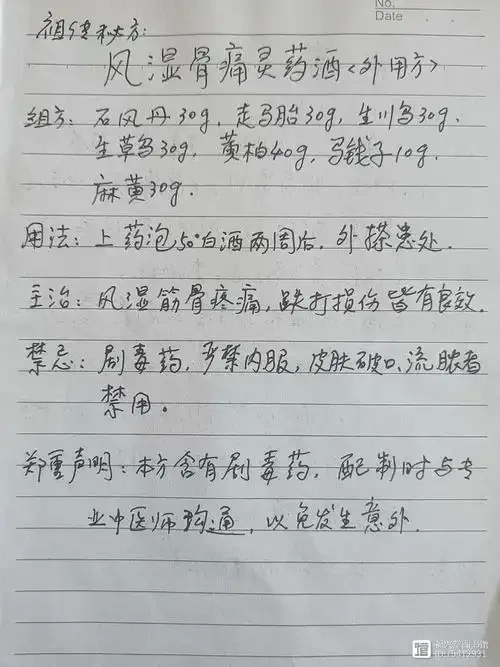 No.
Date
祖传秘方:
风湿骨痛灵药酒<外用方>
组方: 石风丹30g, 走马胎30g, 生川乌30g.
生草乌30g, 黄柏40g, 马钱子10g.
麻黄30g.
用法: 上药泡50°白酒两周后, 外搽患处.
主治: 风湿筋骨疼痛, 跌打损伤皆有良效.
禁忌: 剧毒药, 严禁内服, 皮肤破口、流脓者
禁用。
郑重声明: 本方含有剧毒药, 配制时与专
业中医师沟通, 以免发生意外.